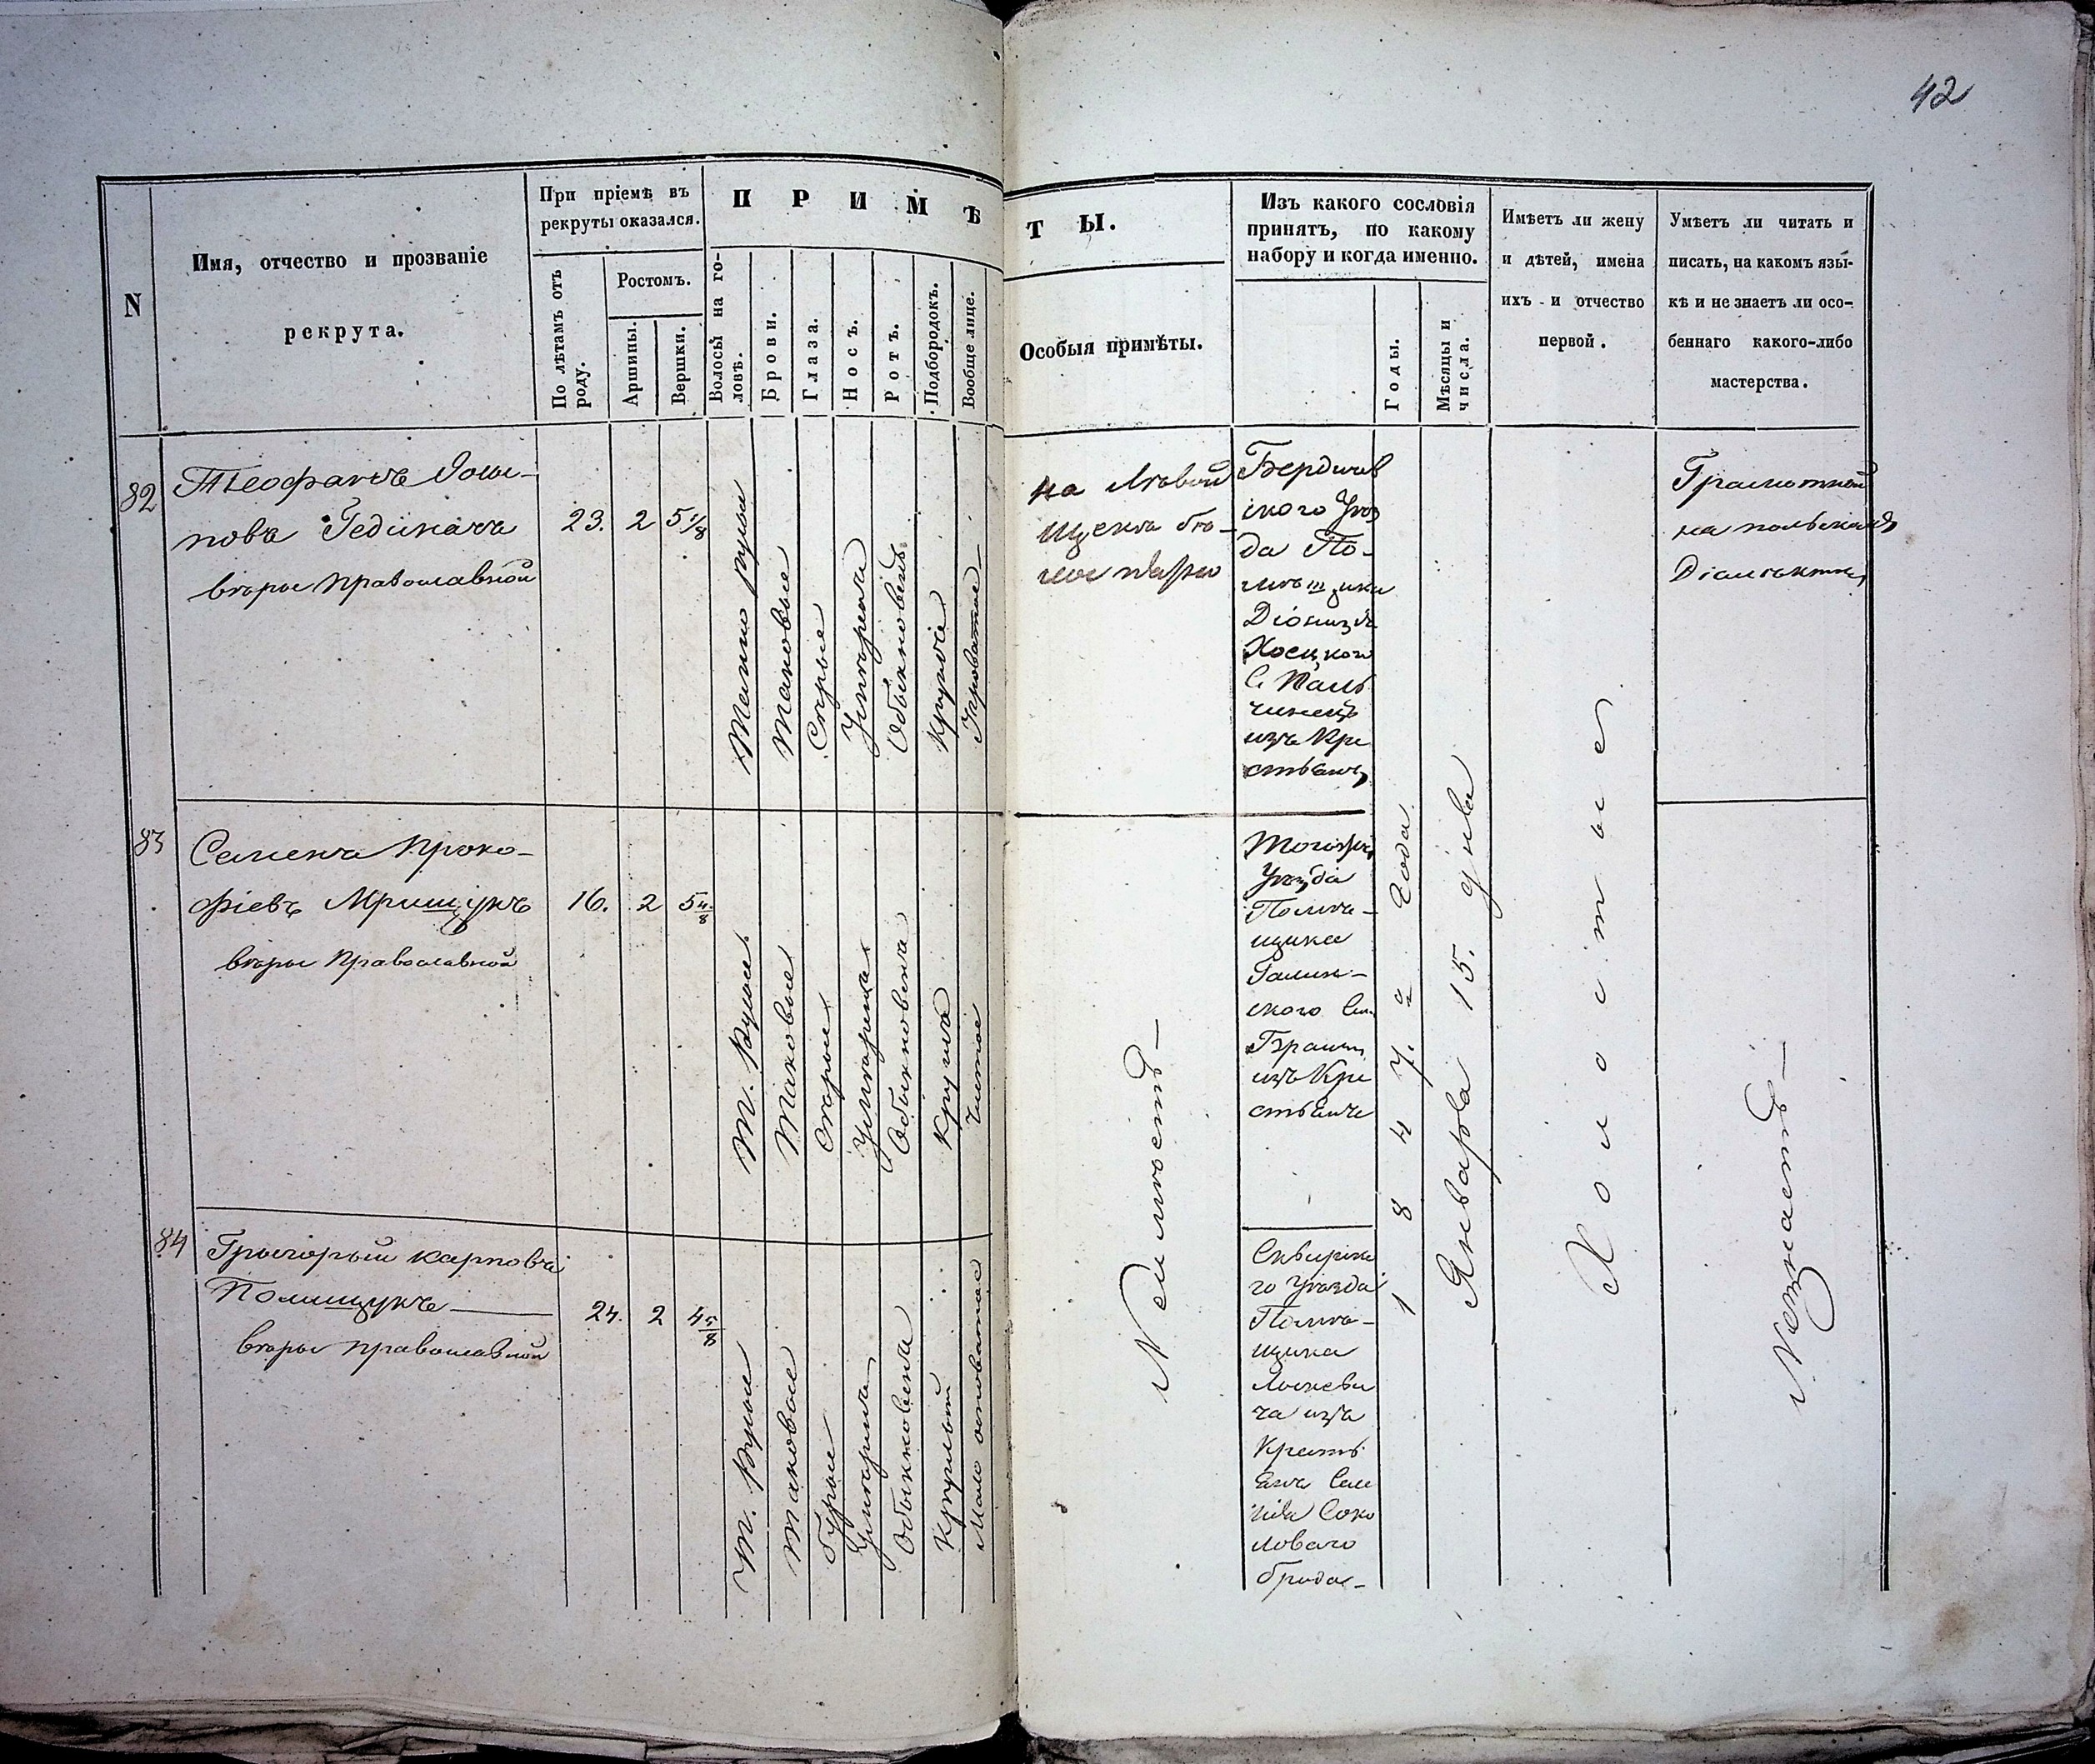 42
N
Имя, отчество и прозваніе
рекрута.
При пріемѣ въ
рекруты оказался.
По лѣтамъ отъ
роду.
Ростомъ.
Аршины.
Вершки.
ПРИМѢ
Волосы на го-
ловѣ.
Брови.
Глаза.
Носъ.
Ротъ.
Подбородокъ.
Вообще лице.
ТЫ.
Особыя примѣты.
Изъ какого сословія
принятъ, по какому
набору и когда именно.
Годы.
Мѣсяцы и
числа.
Имѣетъ ли жену
и дѣтей, имена
ихъ и отчество
первой.
Умѣетъ ли читать и
писать, на какомъ язы-
кѣ и не знаетъ ли осо-
беннаго какого-либо
мастерства.
82
Теофанъ
новъ
вѣры православной
23.
2
5 1/8
Темно русыя
Таковые
Сѣрые
Умѣренъ
Обыкновенъ
Круглъ
на лѣвой
щекѣ
Бердичев
ского Уѣз
да По-
мѣщика
Діонизія
Хоецкого
с.
изъ Кре
стьянъ
Грамотной
на польскомъ
Діалектѣ
83
Семенъ Проко-
фіевъ Мрищукъ
вѣры православной
16.
2
5 4/8
Т. Русые
Таковые
Сѣрые
Умѣренъ
Обыкновенъ
Круглъ
Чистое
Неимѣетъ
Уѣзда
Помѣ-
щика
ского
изъ Кре
стьянъ
1847. го Года
Января 15. дня
Холостые
Незнаетъ
84
Григорый Карповъ
Полищукъ
вѣры православной
24.
2
4 5/8
Т. Русые
Таковые
Умѣренъ
Обыкновенъ
Круглый
Мало осповатое
Сквирска
го Уѣзда
Помѣ-
щика
ча изъ
Кресть
янъ Сел
Соко
ловаго
брода